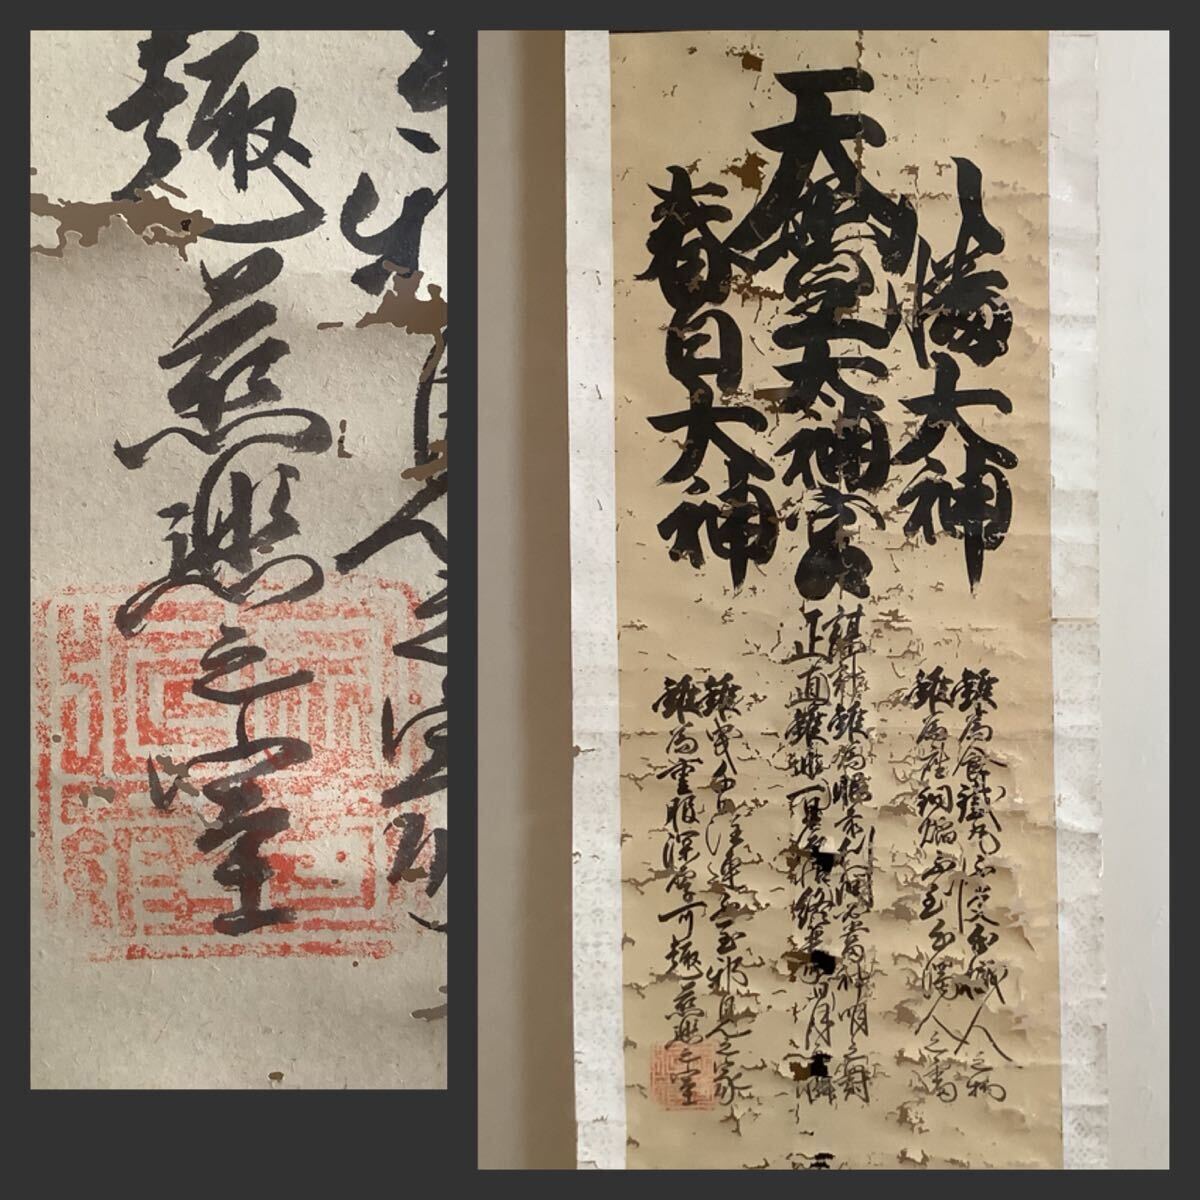 天照皇太神宮
八幡大神
春日大神
謀計雖為眼前利潤必當神明之罰
正直雖非一旦依怙終蒙日月之憐
雖為食鐵丸不受心穢人之物
雖為座銅焔不到心濁人之處
雖曳千日注連不至邪見之家
雖為重服深厚可趣慈悲之室
趣慈悲之室